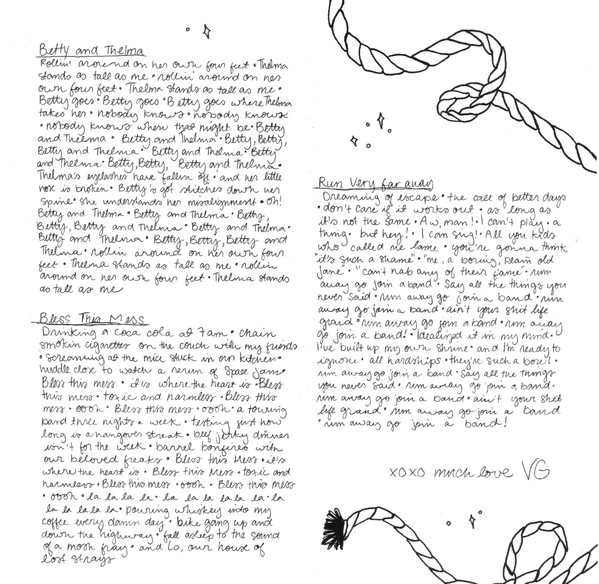 Betty and Thelma
Rollin' around on her own four feet • Thelma
stands as tall as me • rollin' around on her
own four feet • Thelma stands as tall as me •
Betty goes • Betty goes • Betty goes where Thelma
takes her • nobody knows • nobody knows
• nobody knows where that might be • Betty
and Thelma • Betty and Thelma • Betty, Betty,
Betty and Thelma • Betty and Thelma • Betty
and Thelma • Betty, Betty, Betty and Thelma •
Thelma's eyelashes have fallen off • and her little
nose is broken • Betty's got stitches down her
spine • she understands her misalignment • oh!
Betty and Thelma • Betty and Thelma • Betty,
Betty, Betty and Thelma • Betty and Thelma •
Betty and Thelma • Betty, Betty, Betty and
Thelma • rollin around on her own four
feet • Thelma stands as tall as me • rollin
around on her own four feet • Thelma stands
as tall as me
Bless This Mess
Drinking a coca cola at 7am • Chain
smokin cigarettes on the couch with my friends
• screaming at the mice stuck in our kitchen •
huddle close to watch a rerun of Space Jam •
Bless this mess • it is where the heart is • Bless
this mess • toxic and harmless • Bless this
mess • oooh • Bless this mess • oooh • a touring
band three nights a week • testing just how
long is a hangover streak • beef jerky dinner
isn't for the weak • barrel bonfires with
our beloved freaks • Bless this Mess • it's
where the heart is • Bless this Mess • toxic and
harmless • Bless this mess • oooh • Bless this mess
• oooh • la la la la • la la la la la la • la
la la la la la • pouring whiskey into my
coffee every damn day • bike gang up and
down the highway • fall asleep to the sound
of a mosh fray • and lo, our house of
lost strays
Run Very far away
Dreaming of escape • the call of better days
• don't care if it works out • as long as
it's not the same • Aw, man! • I can't play a
thing • but hey! • I can sing! • All you kids
who called me lame • you're gonna think
it's such a shame • me, a boring, plain old
jane • can't nab any of their fame • run
away go join a band • Say all the things you
never said • run away go join a band • run
away go join a band • ain't your shit life
grand • run away go join a band • run away
go join a band! • Idealized it in my mind •
I've built up my own shrine • and I'm ready to
ignore • all hardships • they're such a bore! •
run away go join a band • Say all the things
you never said • run away go join a band •
run away go join a band • ain't your shit
life grand • run away go join a band
• run away go join a band!
xoxo much love VG